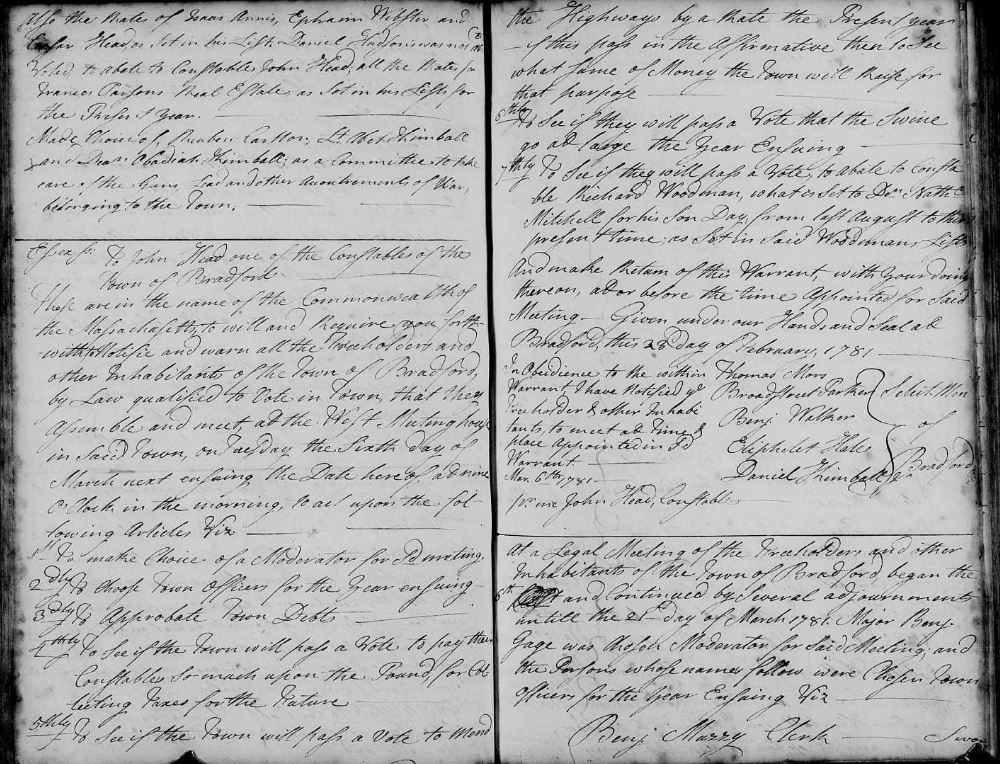 Also the Rates of Isaac Annis, Ephraim Webster and
Cesar Head as Set in his List. Daniel was not
Voted to abate to Constable John Head, all the Rates for
Frances Parsons Real Estate as Set in his Lists for
the Present Year.
Made Choice of, Reuben Carlton, Lt Abel Kimball
and Dean Obadiah Kimball, as a Committee to take
care of the Guns, Lead and other Acoutrements of War,
belonging to the Town.
Essex Ss. To John Head one of the Constables of the
Town of Bradford
These are in the name of the Commonwealth of
the Massachusetts, to will and Require you forth
with to Notifie and warn all the Freeholders and
other Inhabitants of the Town of Bradford,
by Law qualified to Vote in Town, that they
Assemble and meet, at the West Meeting house
in Said Town, on Tuesday the Sixth day of
March next ensuing the Date hereof at nine
o Clock in the morning, to act upon the fol
lowing Articles Viz
1st To make Choice of a Moderator for Sd meeting.
2dly To choose Town Officers for the Year ensuing
3dly To Approbate Town Debts
4thly To See if the Town will pass a Vote to pay their
Constables So much upon the Pound, for Col
lecting Taxes for the Future
5thly To See if the Town will pass a Vote to Mend
the Highways by a Rate the Present year
- if this pass in the Affirmative then to See
what Some of Money the Town will Raise for
that purpose
6thly To See if they will pass a Vote that the Swine
go at large the Year Ensuing
7thly To See if they will pass a Vote, to abate to Consta
ble Richard Woodman, what is Set to Dn. Nathl
Mitchell for his Son Day, from last August to this
present time, as Set in Said Woodmans Lists
And make Return of this Warrant, with your doings
thereon, at or before the time Appointed for Said
Meeting. Given under our Hands and Seal at
Bradford, this 23d day of February, 1781
In Obedience to the within
Warrant I have Notified ye
Freeholder & other Inhabi
tants, to meet at time &
place Appointed in Sd
Warrant
Mar. 6th, 1781.
pr. me John Head, Constable
Thomas Mors
Broadstreet Parker
Benj. Walker
Eliphelet Hale
Daniel Kimball Jr
Select Men
of
Bradford
At a Legal Meeting of the Freeholders and other
Inhabitants of the Town of Bradford, began the
6th and Continued by Several adjournments
untill the 21st day of March 1781. Major Benj.
Gage was chosen Moderator for Said Meeting, and
the Persons whose names follow were Chosen Town
Officers for the Year Ensuing Viz
Benj. Muzzy Clerk Swor